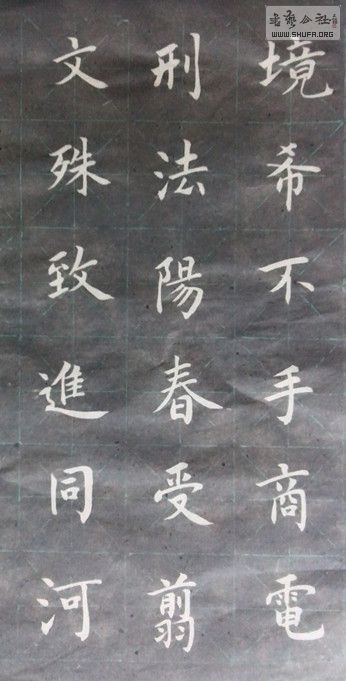 境希不手商電
刑法陽春受翦
文殊致進同河
書藝公社
WWW.SHUFA.ORG